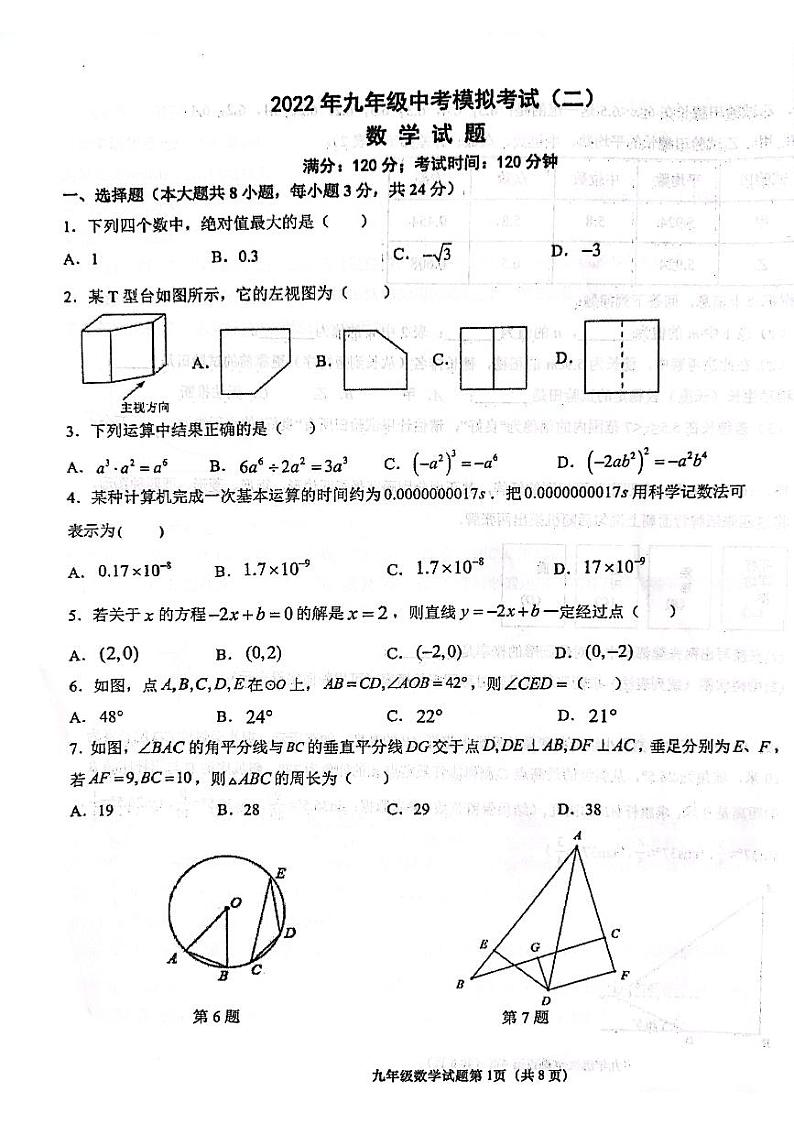 2022 年九年级中考模拟考试（二）
数 学 试 题
满分：120 分；考试时间：120 分钟
一、选择题（本大题共 8 小题，每小题 3 分，共 24 分）
1. 下列四个数中，绝对值最大的是（    ）
A. 1    B. 0.3    C. −√3    D. −3
2. 某 T 型台如图所示，它的左视图为（    ）
主视方向
A.    B.    C.    D.
3. 下列运算中结果正确的是（    ）
A. a³·a²=a⁶    B. 6a⁶÷2a²=3a³    C. (−a²)³=−a⁶    D. (−2ab²)²=−a²b⁴
4. 某种计算机完成一次基本运算的时间约为 0.0000000017s．把 0.0000000017s 用科学记数法可
表示为(    )
A. 0.17×10⁻⁸    B. 1.7×10⁻⁹    C. 1.7×10⁻⁸    D. 17×10⁻⁹
5. 若关于 x 的方程 −2x+b=0 的解是 x=2，则直线 y=−2x+b 一定经过点（    ）
A. (2,0)    B. (0,2)    C. (−2,0)    D. (0,−2)
6. 如图，点 A,B,C,D,E 在⊙O 上，AB=CD,∠AOB=42°，则∠CED=（    ）
A. 48°    B. 24°    C. 22°    D. 21°
7. 如图，∠BAC 的角平分线与 BC 的垂直平分线 DG 交于点 D,DE⊥AB,DF⊥AC，垂足分别为 E、F，
若 AF=9,BC=10，则△ABC 的周长为（    ）
A. 19    B. 28    C. 29    D. 38
E
O
D
A
B
C
第 6 题
A
E
G
C
B
F
D
第 7 题
九年级数学试题第 1页（共 8 页）